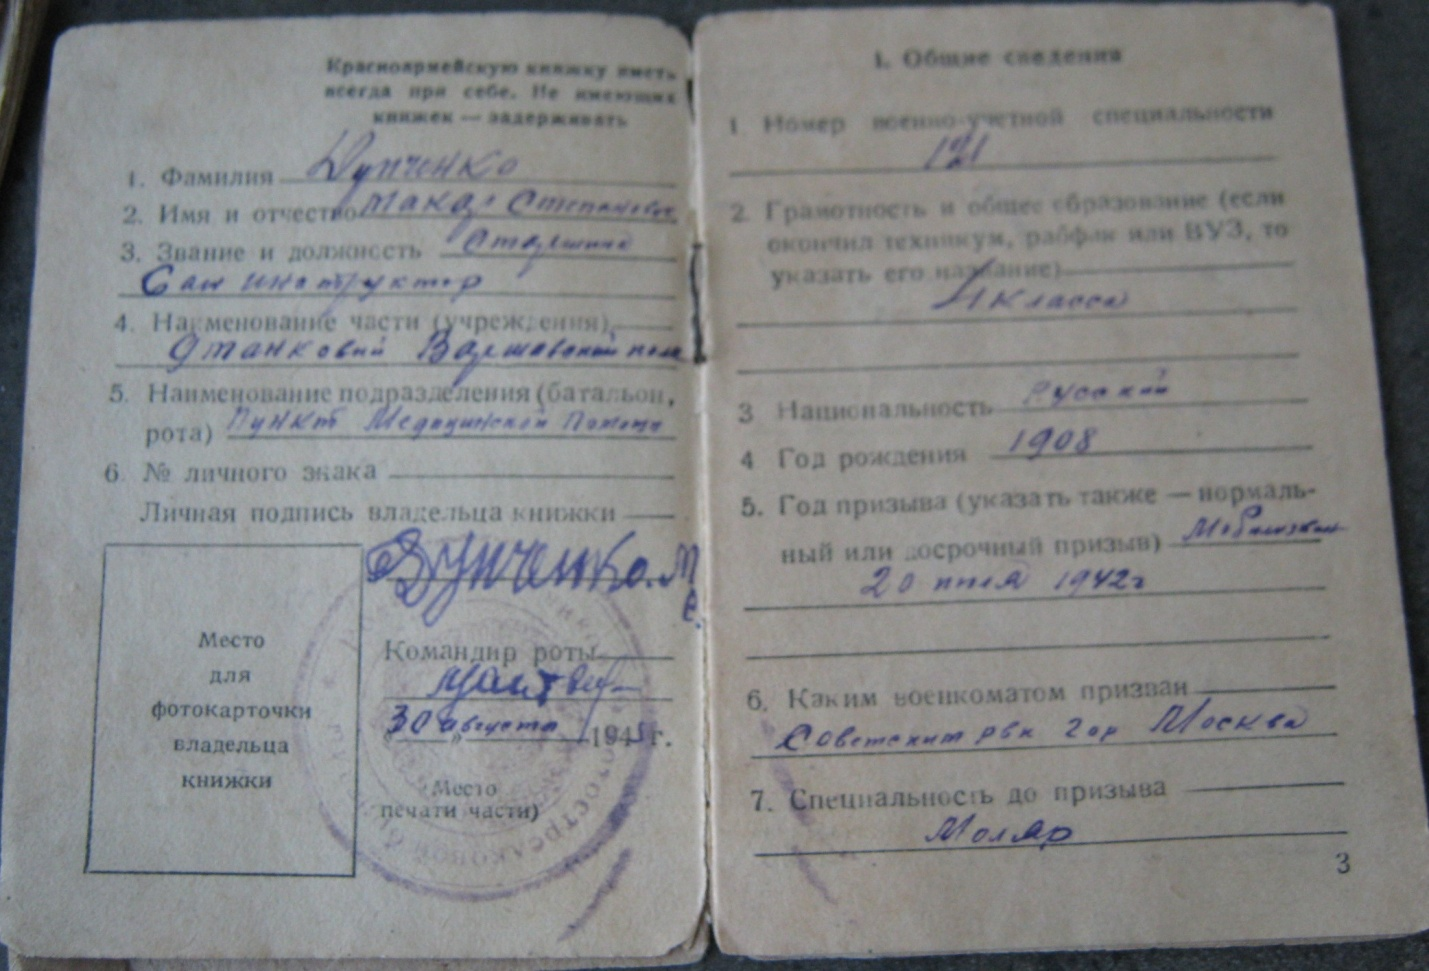 Красноармейскую книжку иметь
всегда при себе. Не имеющих
книжек — задерживать
1. Фамилия Дупченко
2. Имя и отчество Макар Степанович
3. Звание и должность Старшина
Сан инструктор
4. Наименование части (учреждения)
9 танковый Варшавский полк
5. Наименование подразделения (батальон,
рота) Пункт Медицинской Помощи
6. № личного знака
Личная подпись владельца книжки
Дупченко. М
С.
Место
для
фотокарточки
владельца
книжки
Командир роты
30 августа 1945 г.
Место
печати части)
1. Общие сведения
1. Номер военно-учетной специальности
121
2. Грамотность и общее образование (если
окончил техникум, рабфак или ВУЗ, то
указать его название)
4 класса
3 Национальность Русский
4 Год рождения 1908
5. Год призыва (указать также — нормаль-
ный или досрочный призыв)
20 1942г
6. Каким военкоматом призван
Советским рвк гор Москва
7. Специальность до призыва
Моляр
3